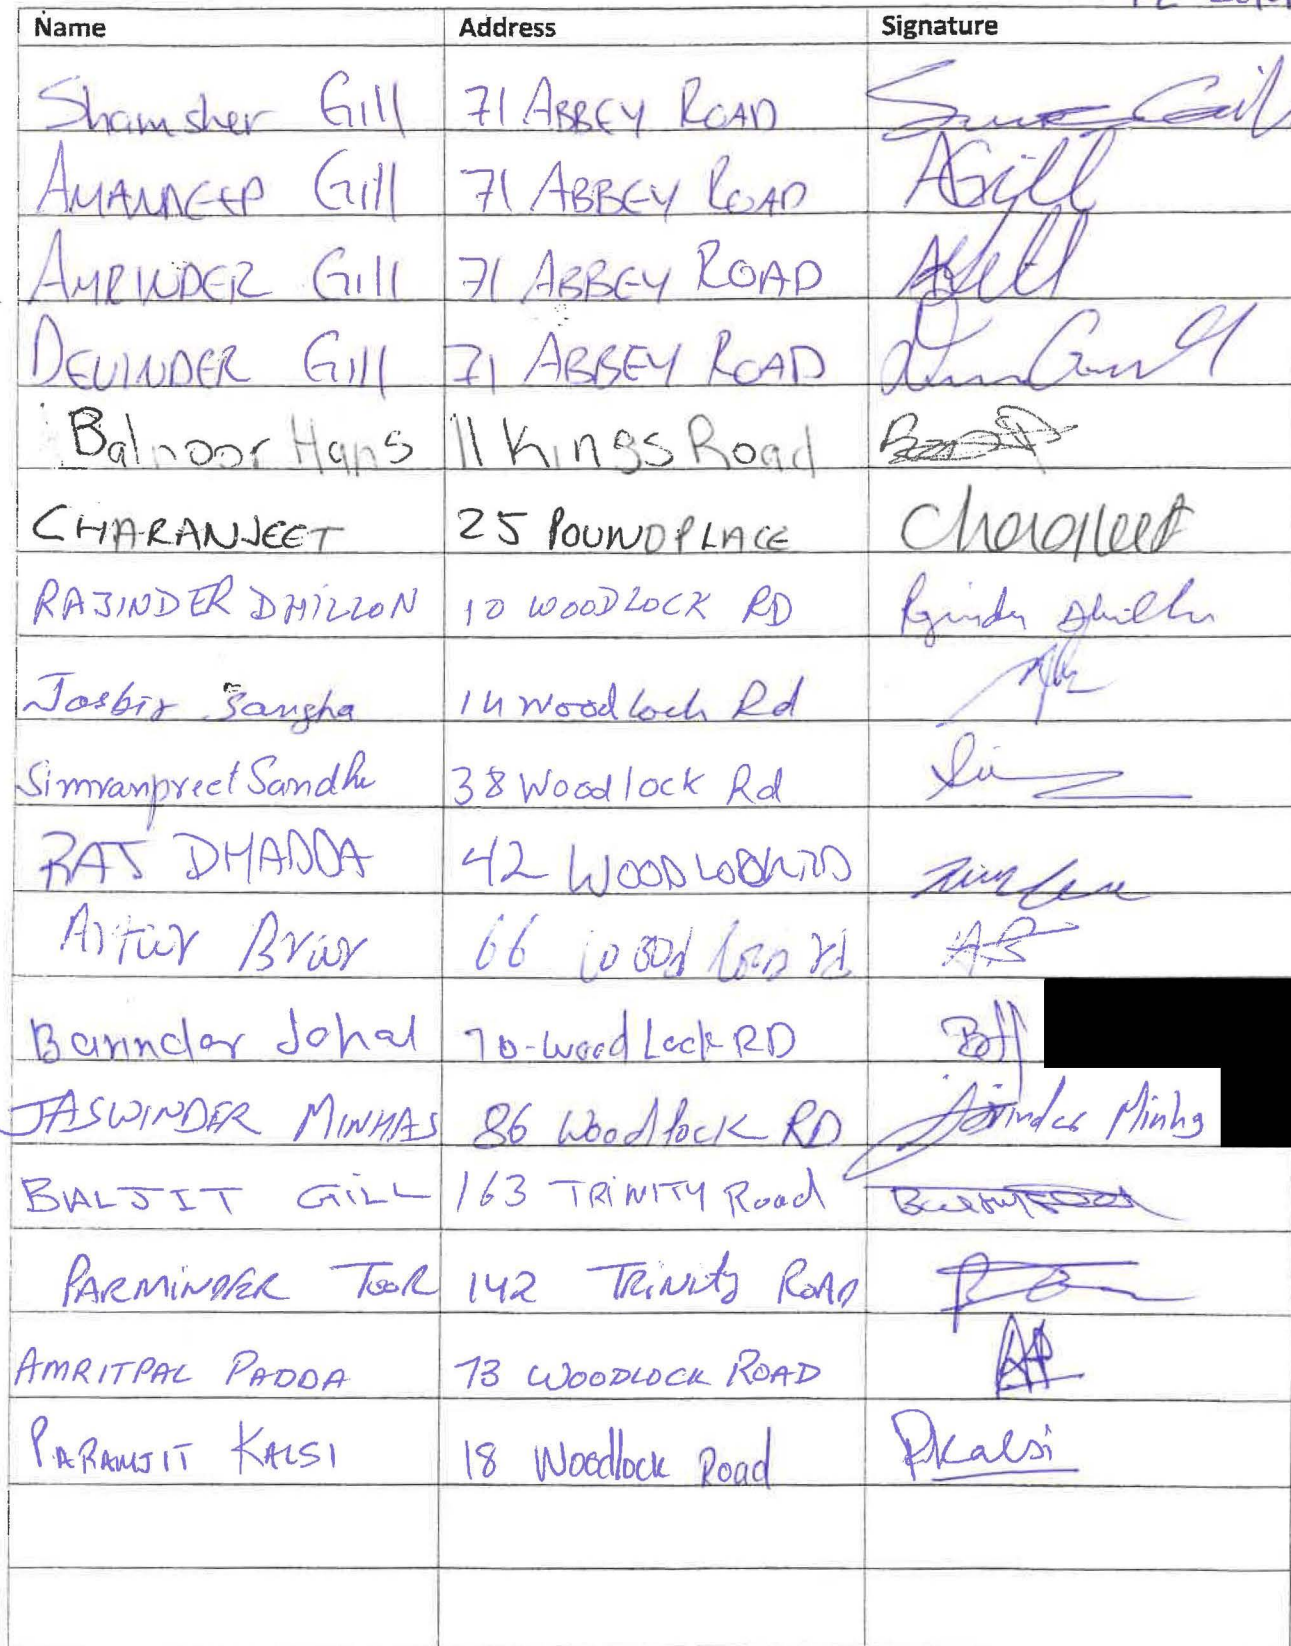 Name Address Signature
Shamsher Gill 71 ABBEY ROAD Gill
AMANDEEP Gill 71 ABBEY ROAD AGill
AMRINDER Gill 71 ABBEY ROAD AGill
DEVINDER Gill 71 ABBEY ROAD
Balnoor Hans 11 Kings Road
CHARANJEET 25 POUND PLACE Charanjeet
RAJINDER DHILLON 10 WOODLOCK RD Rajinder Dhillon
Jasbir Sangha 14 Woodlock Rd
Simranpreet Sandhu 38 Woodlock Rd
RAJ DHADDA 42 WOODLOCK RD
Brar 66 Rd AB
Barinder Johal 70-Wood Lock RD
JASWINDER MINHAS 86 Woodlock RD Jaswinder Minhas
BALJIT GILL 163 TRINITY Road
PARMINDER TOOR 142 TRINITY ROAD
AMRITPAL PADDA 73 WOODLOCK ROAD AP
PARAMJIT KALSI 18 Woodlock Road Pkalsi